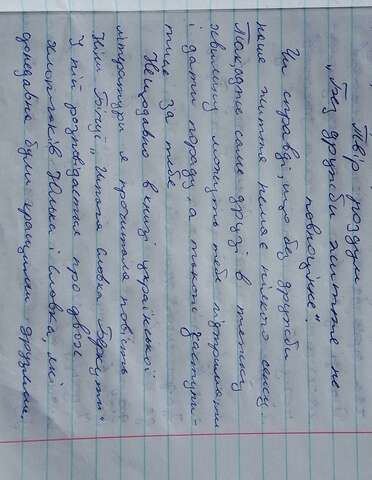 Твір роздум
„Без дружби життя не
повноцінне".
Чи справді, що без дружби
наше життя немає ніякого сенсу.
саме друзі в тяжку
хвилину можуть тебе підтримати
і дати пораду, а також заступи-
за тебе.
Нещодавно в книзі української
літератури я прочитала повість
Ніни Бічуї „Шпага Славка Беркути".
У ній розповідається про двох
хлопчаків Юлька і Славка, які
донедавна були кращими друзями.